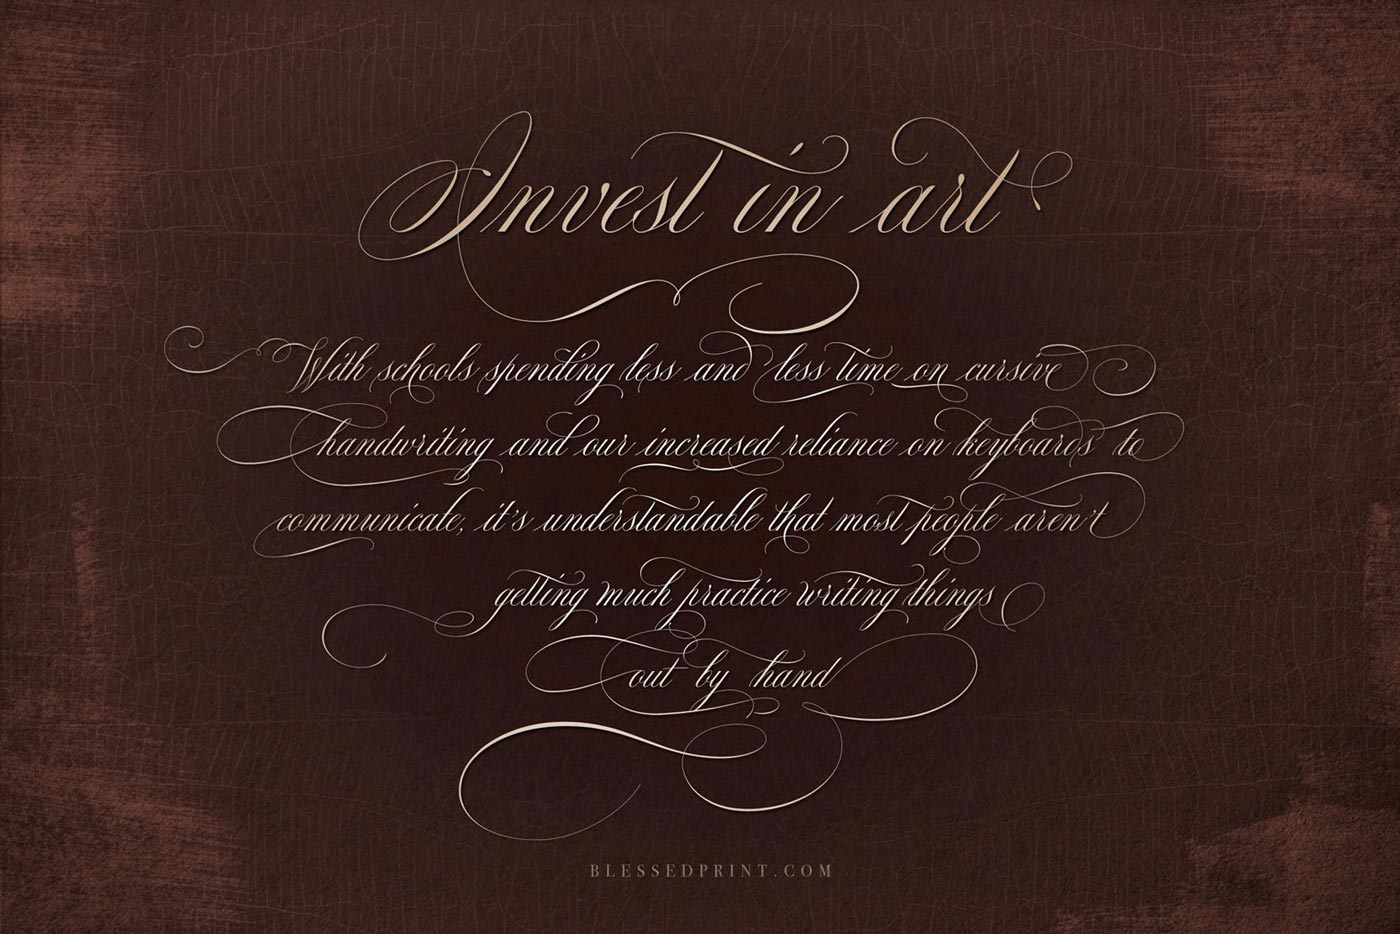 Invest in art
With schools spending less and less time on cursive
handwriting and our increased reliance on keyboards to
communicate, it's understandable that most people aren't
getting much practice writing things
out by hand
BLESSEDPRINT.COM